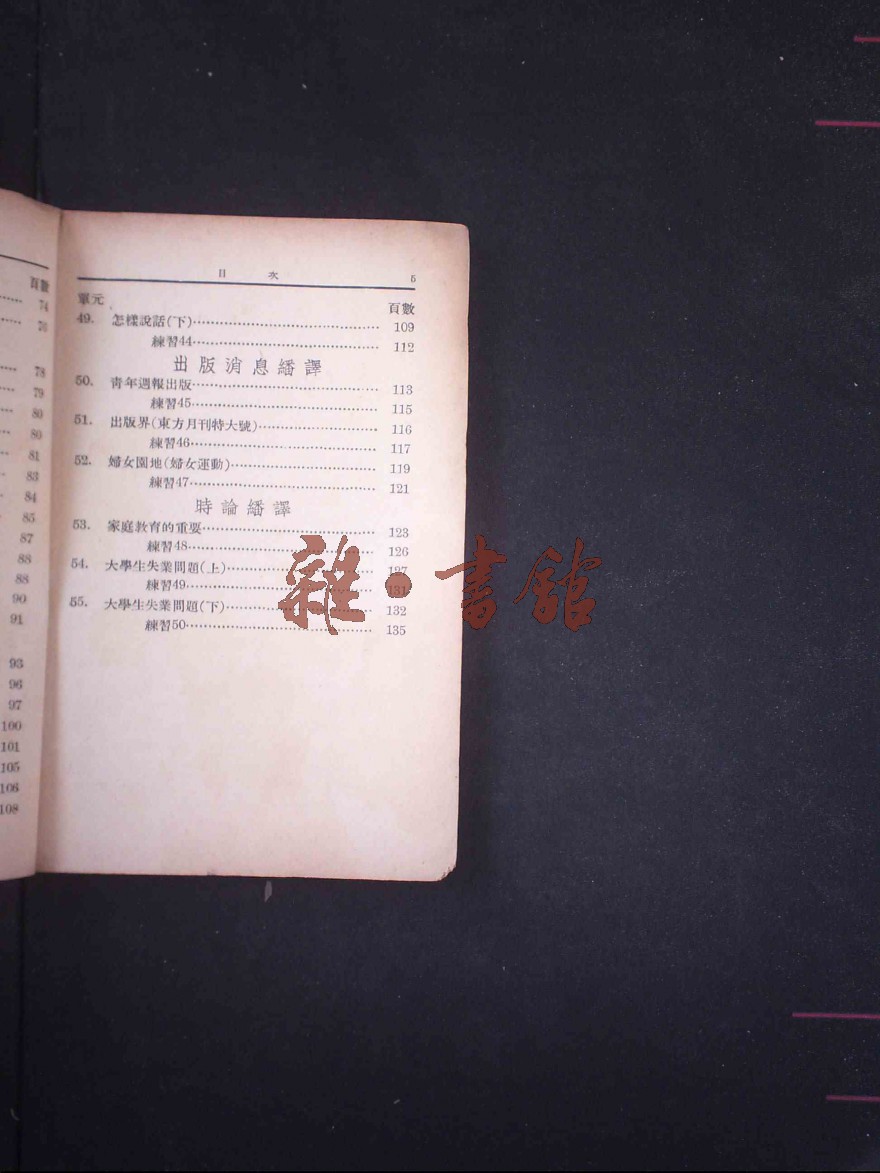 頁數
74
76
78
79
80
80
81
83
84
85
87
88
88
90
91
93
96
97
100
101
105
106
108
目 次 5
單元 頁數
49. 怎樣說話(下) 109
練習44 112
出版消息繙譯
50. 靑年週報出版 113
練習45 115
51. 出版界(東方月刊特大號) 116
練習46 117
52. 婦女園地(婦女運動) 119
練習47 121
時論繙譯
53. 家庭敎育的重要 123
練習48 126
54. 大學生失業問題(上) 127
練習49 131
55. 大學生失業問題(下) 132
練習50 135
雜·書館